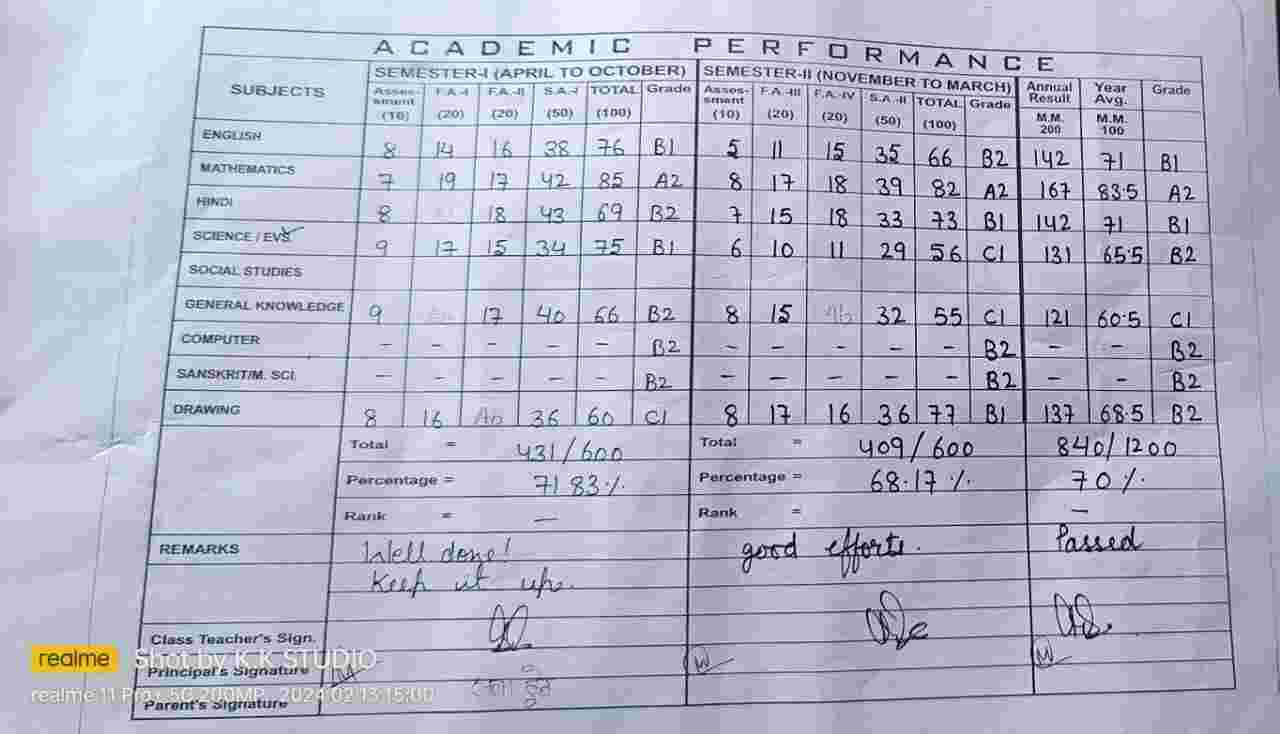 ACADEMIC PERFORMANCE
SUBJECTS SEMESTER-I (APRIL TO OCTOBER) SEMESTER-II (NOVEMBER TO MARCH) Annual Result Year Avg. Grade
Asses-sment (10) F.A.-I (20) F.A.-II (20) S.A.-I (50) TOTAL (100) Grade Asses-sment (10) F.A.-III (20) F.A.-IV (20) S.A.-II (50) TOTAL (100) Grade M.M. 200 M.M. 100
ENGLISH 8 14 16 38 76 B1 5 11 15 35 66 B2 142 71 B1
MATHEMATICS 7 19 17 42 85 A2 8 17 18 39 82 A2 167 83.5 A2
HINDI 8 18 43 69 B2 7 15 18 33 73 B1 142 71 B1
SCIENCE / EVS. 9 17 15 34 75 B1 6 10 11 29 56 C1 131 65.5 B2
SOCIAL STUDIES
GENERAL KNOWLEDGE 9 17 40 66 B2 8 15 Ab 32 55 C1 121 60.5 C1
COMPUTER - - - - - B2 - - - - - B2 - - B2
SANSKRIT/M. SCI. - - - - - B2 - - - - - B2 - - B2
DRAWING 8 16 Ab 36 60 C1 8 17 16 36 77 B1 137 68.5 B2
Total = 431/600 Total = 409/600 840/1200
Percentage = 71.83% Percentage = 68.17% 70%
Rank = - Rank = -
REMARKS Well done! good efforts. Passed
Keep it up.
Class Teacher's Sign.
Principal's Signature
Parent's Signature
realme Shot by K.K STUDIO
realme 11 Pro+ 5G 200MP 2024.02.13 15:00